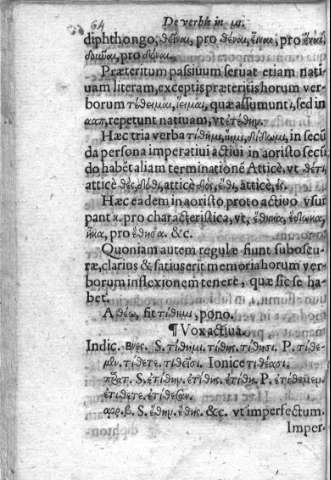 64 De verbis in μι.
diphthongo, θεῖναι, pro θέναι, εἶναι, pro ἕναι,
δοῦναι, pro δόναι.
Præteritum passiuum seruat etiam nati
uam literam, exceptis præteritis horum ver
borum τέθειμαι, εἷμαι, quæ assumunt ι, sed in
repetunt natiuam, vt ἐτέθην.
Hæc tria verba τίθημι, ἵημι, δίδωμι, in secū
da persona imperatiui actiui in aoristo secū
do habēt aliam terminationē Atticè, vt θέτι,
atticè θές, δόθι, atticè δός, ἕθι, atticè, ἕς.
Hæc eadem in aoristo proto actiuo vsur
pant κ. pro characteristica, vt, ἔθηκα, ἔδωκα,
ἧκα, pro ἔθησα. &c.
Quoniam autem regulæ fiunt subobscu
ræ, clarius & satius erit memoria horum ver
borum inflexionem tenere, quæ sic se ha-
bet.
A θέω, fit τίθημι, pono.
¶ Vox actiua.
Indic. Ἐνες. S. τίθημι, τίθης, τίθησι. P. τίθε-
μεν, τίθετε, τιθεῖσι. Ionicè τιθέασι.
πρατ. S. ἐτίθην, ἐτίθης, ἐτίθη. P. ἐτίθεμεν,
ἐτίθετε, ἐτίθεσαν.
αορ. β. S. ἔθην, ἔθης, &c. vt imperfectum.
Imper-